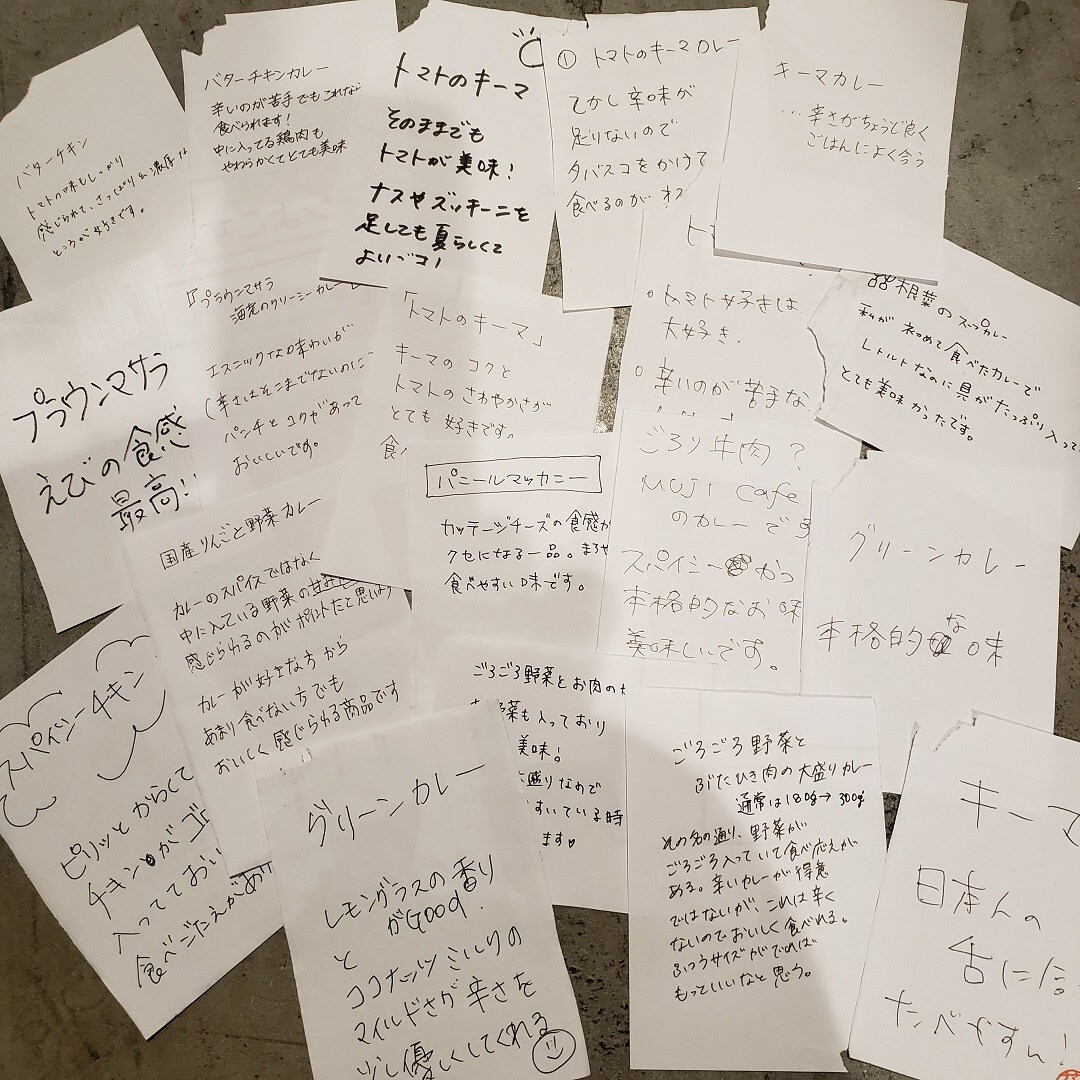 バターチキン
トマトの味もしっかり
感じられて、さっぱり&濃厚な
ところが好きです。
バターチキンカレー
辛いのが苦手でもこれなら
食べられます!
中に入ってる鶏肉も
やわらかくてとても美味
トマトのキーマ
そのままでも
トマトが美味!
ナスやズッキーニを
足しても夏らしくて
よいデコ!
① トマトのキーマカレー
てかし辛味が
足りないので
タバスコをかけて
食べるのが
キーマカレー
…辛さがちょうど良く
ごはんによく合う
プラウンマサラ
えびの食感
最高!!
『プラウンマサラ
海老のクリーミーカレー』
エスニックな味わいが
(辛さはそこまでないのに
パンチとコクがあって
おいしいです。
「トマトのキーマ」
キーマのコクと
トマトのさわやかさが
とても好きです。
食
ト
○トマト好きは
大好き.
○辛いのが苦手な
根菜のスープカレー
私が初めて食べたカレーで
レトルトなのに具がたっぷり入って
とても美味かったです。
国産りんごと野菜カレー
カレーのスパイスではなく
中に入ている野菜の甘みを
感じられるのがポイントだと思います
カレーが好きな方から
あまり食べない方でも
おいしく感じられる商品です
パニールマッカニー
カッテージチーズの食感が
クセになる一品。まろや
食べやすい味です。
ごろり牛肉?
MUJI cafe
のカレーです
スパイシーかつ
本格的なお味
美味しいです。
グリーンカレー
本格的な味
スパイシーチキン
ピリッとからくて
チキンがゴロ
入ってておい
食べごたえがあり
グリーンカレー
レモングラスの香り
がGOOD.
と
ココナッツミルクの
マイルドさが辛さを
少し優しくしてくれる
ごろごろ野菜とお肉の
野菜も入っており
美味!
大盛りなので
すいている時
ます♥
ごろごろ野菜と
ぶたひき肉の大盛りカレー
通常は180g→300g
その名の通り、野菜が
ごろごろ入っていて食べ応えが
ある。辛いカレーが得意
ではないが、これは辛く
ないのでおいしく食べれる。
ふつうサイズがでれば
もっといいなと思う。
キーマ
日本人の
舌に